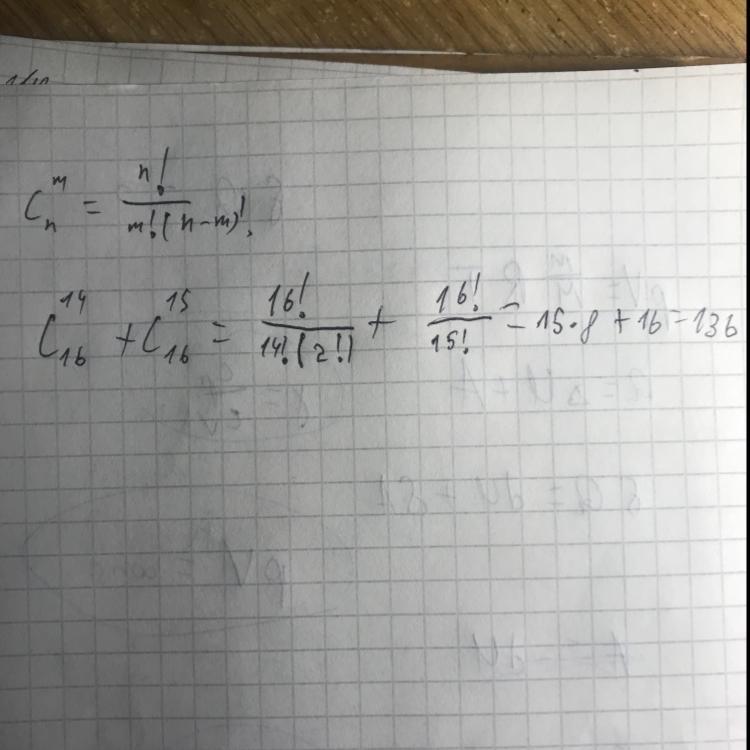 C_n^m = n! / m!(n-m)!
C_16^14 + C_16^15 = 16! / 14!(2!) + 16! / 15! = 15·8 + 16 = 136